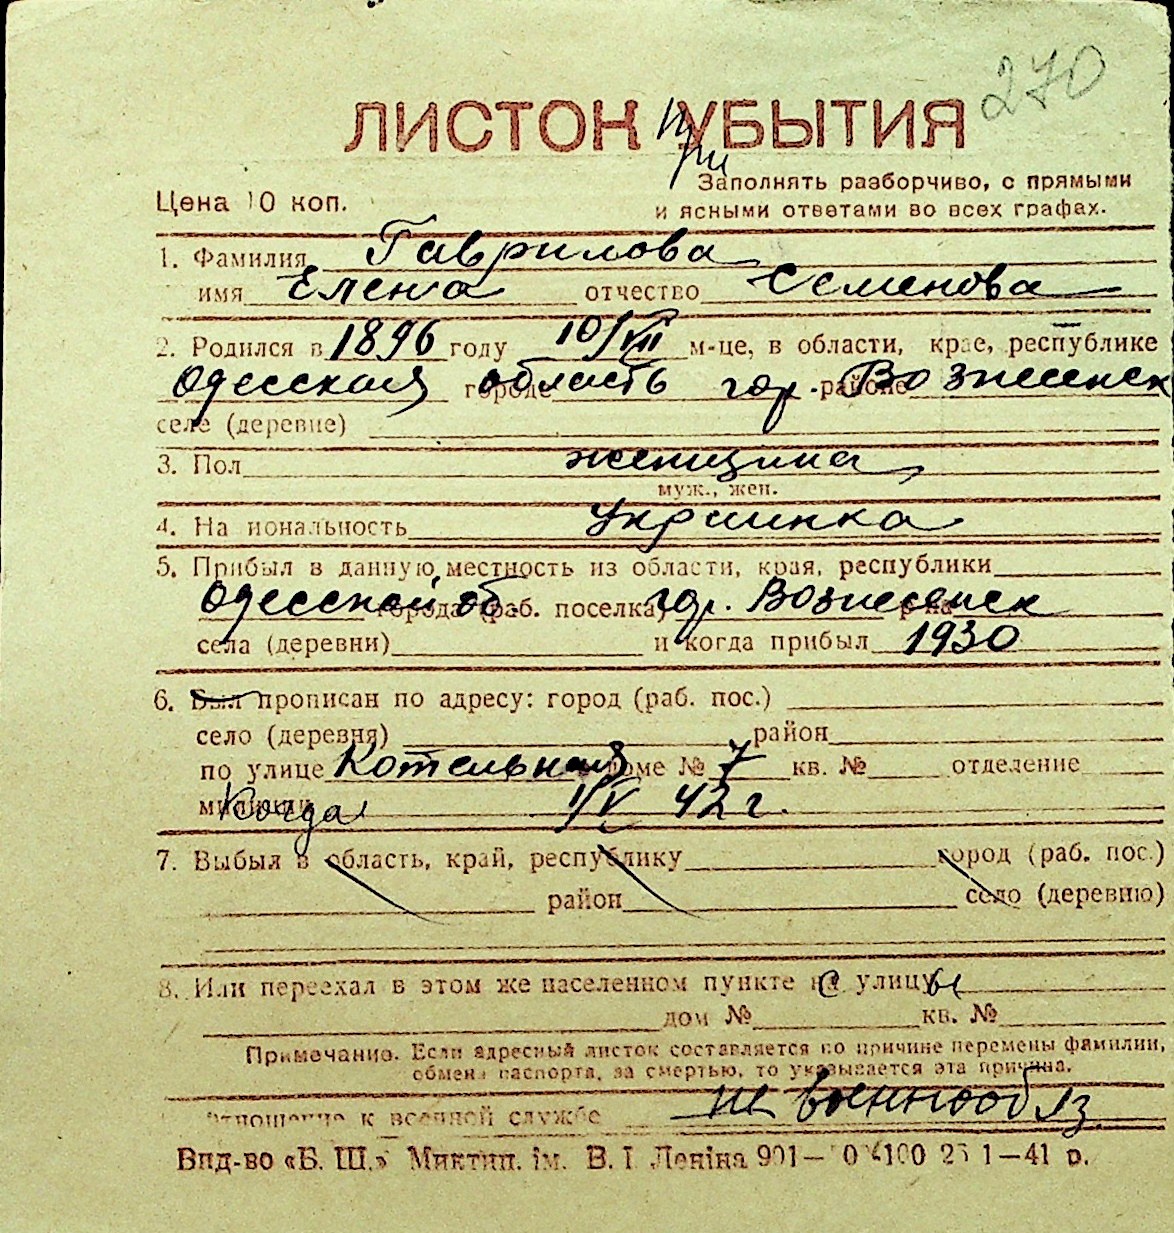 270
ЛИСТОК УБЫТИЯ
при
Цена 10 коп.
Заполнять разборчиво, с прямыми
и ясными ответами во всех графах.
1. Фамилия Гаврилова
имя Елена отчество Семенова
2. Родился в 1896 году 10/VII м-це, в области, крае, республике
Одесская городе область гор. районе Вознесенск
селе (деревне)
3. Пол женщина
муж., жен.
4. На иональность Украинка
5. Прибыл в данную местность из области, края, республики
Одесской об. города (раб. поселка) гор. Вознесенск р-на
села (деревни) и когда прибыл 1930
6. Был прописан по адресу: город (раб. пос.)
село (деревня) район
по улице Котельная доме № 7 кв. № отделение
милиции Когда 1/V 42 г.
7. Выбыл в область, край, республику город (раб. пос.)
район село (деревню)
8. Или переехал в этом же населенном пункте с улицы
дом № кв. №
Примечание. Если адресный листок составляется по причине перемены фамилии,
обмена паспорта, за смертью, то указывается эта причина.
отношение к военной службе не военнообяз.
Вид-во «Б. Ш.» Миктип. ім. В. І Леніна 901— 100 25 1—41 р.